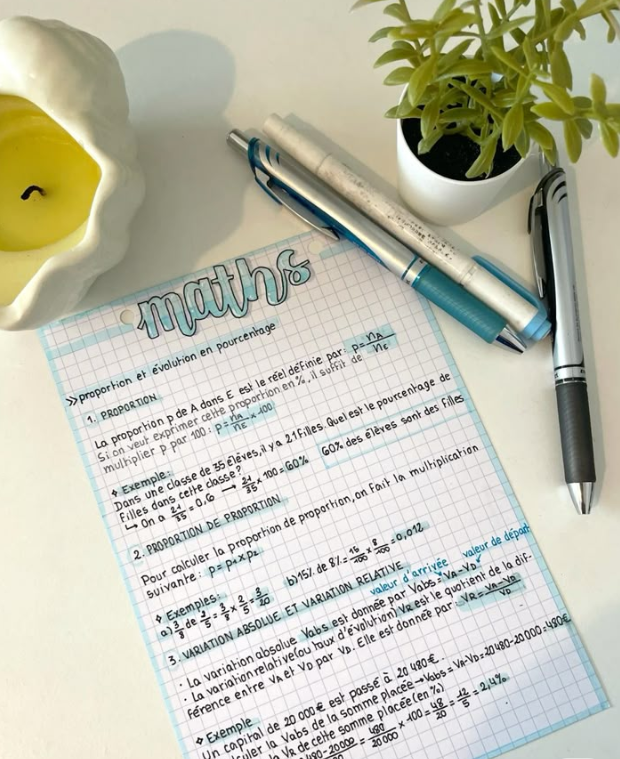 maths
>> proportion et évolution en pourcentage
1. PROPORTION
La proportion p de A dans E est le réel définie par: p = nA/nE
Si on veut exprimer cette proportion en %, il suffit de
multiplier p par 100: p = nA/nE × 100
♦ Exemple:
Dans une classe de 35 élèves, il y a 21 filles. Quel est le pourcentage de
filles dans cette classe?
↳ On a 21/35 = 0,6 → 21/35 × 100 = 60% 60% des élèves sont des filles
2. PROPORTION DE PROPORTION
Pour calculer la proportion de proportion, on fait la multiplication
suivante: p = p1 × p2
♦ Exemples:
a) 3/8 de 2/5 = 3/8 × 2/5 = 3/20 b) 15% de 8% = 15/100 × 8/100 = 0,012
3. VARIATION ABSOLUE ET VARIATION RELATIVE
valeur d'arrivée valeur de départ
· La variation absolue Vabs est donnée par Vabs = VA - VD
· La variation relative (ou taux d'évolution) VR est le quotient de la dif-
férence entre VA et VD par VD. Elle est donnée par VR = VA - VD/VD
♦ Exemple
Un capital de 20 000 € est passé à 20 480 €.
la Vabs de la somme placée → Vabs = VA - VD = 20 480 - 20 000 = 480€
la VR de cette somme placée (en %)
480 - 20000 = 480/20 000 × 100 = 48/20 = 12/5 = 2,4%